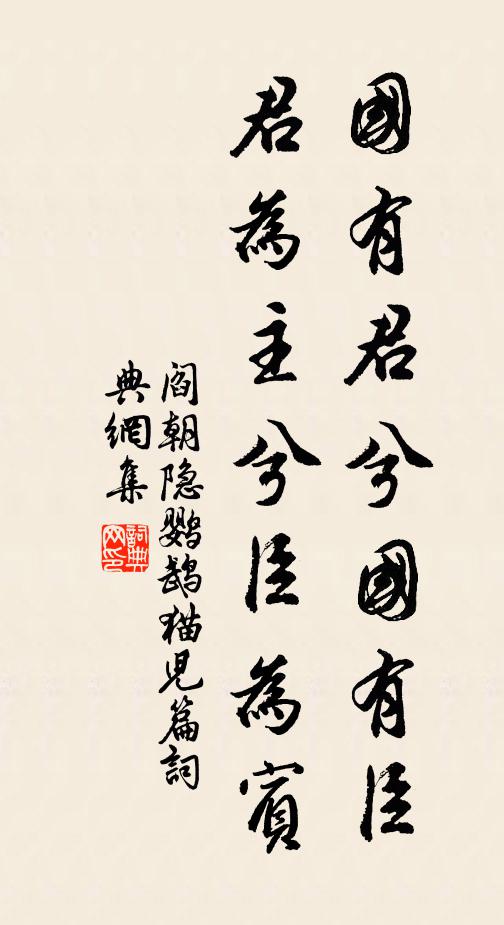 國有君兮國有臣
君為主兮臣為賓
閻朝隐鹦鵡猫兒篇詞
典網集
詞典
网印